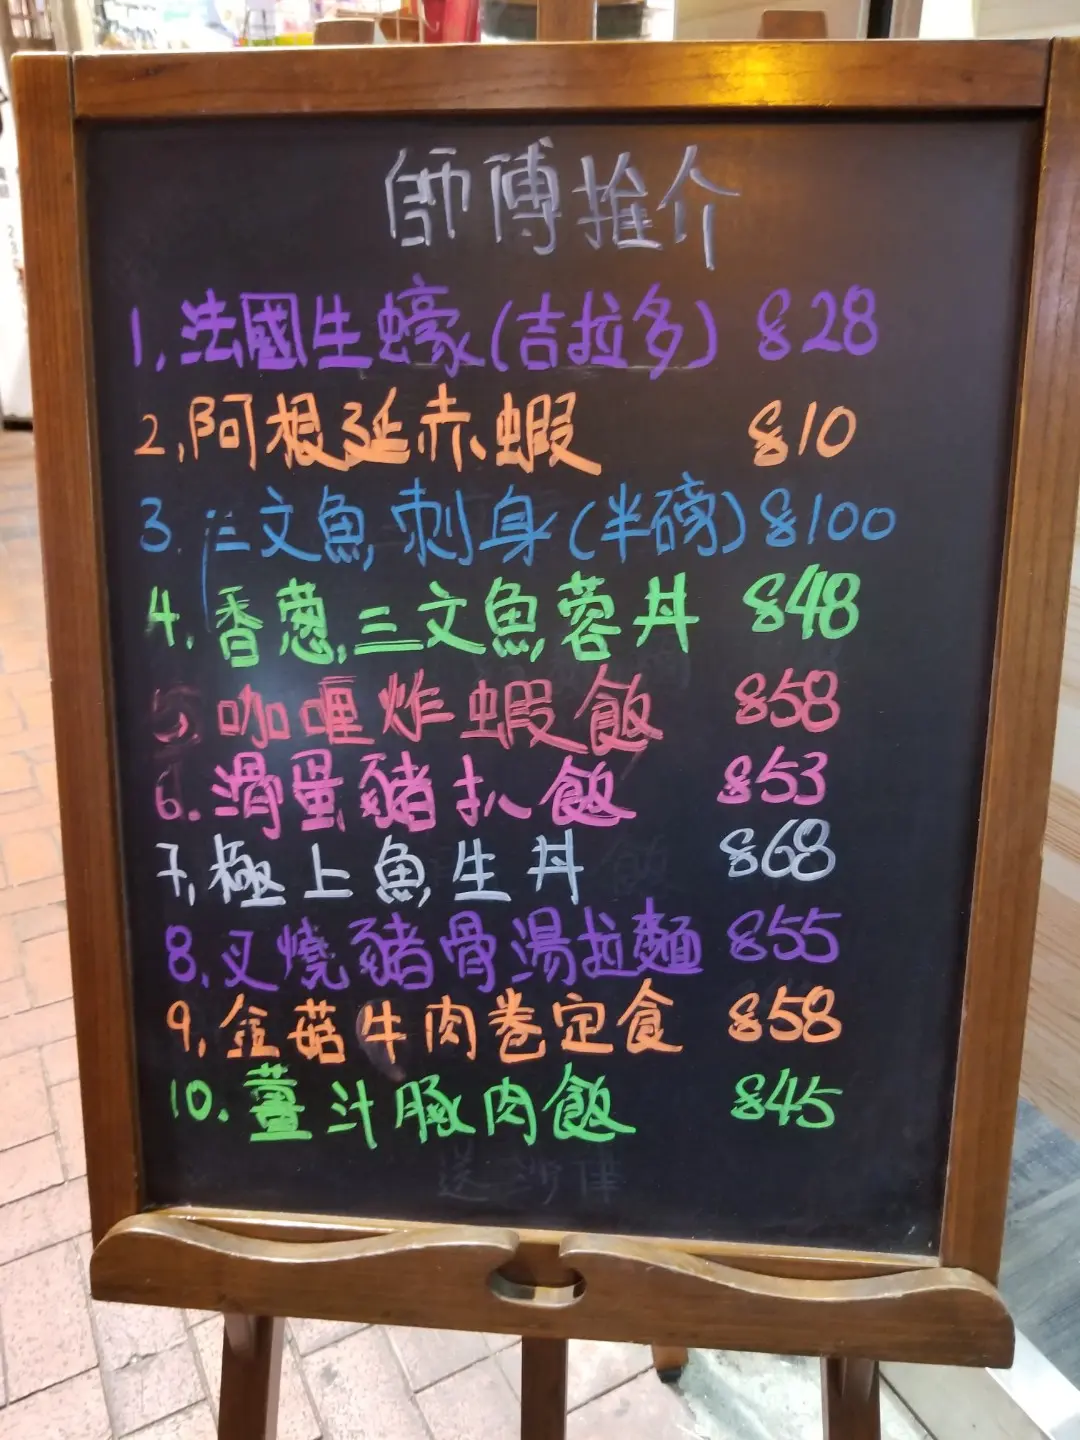 師傅推介
1.法國生蠔(吉拉多) $28
2.阿根延赤蝦 $10
3.三文魚刺身(半磅) $100
4.香蔥三文魚蓉丼 $48
5.咖喱炸蝦飯 $58
6.滑蛋豬扒飯 $53
7.極上魚生丼 $68
8.叉燒豬骨湯拉麵 $55
9.金菇牛肉卷定食 $58
10.薑汁豚肉飯 $45
送沙律